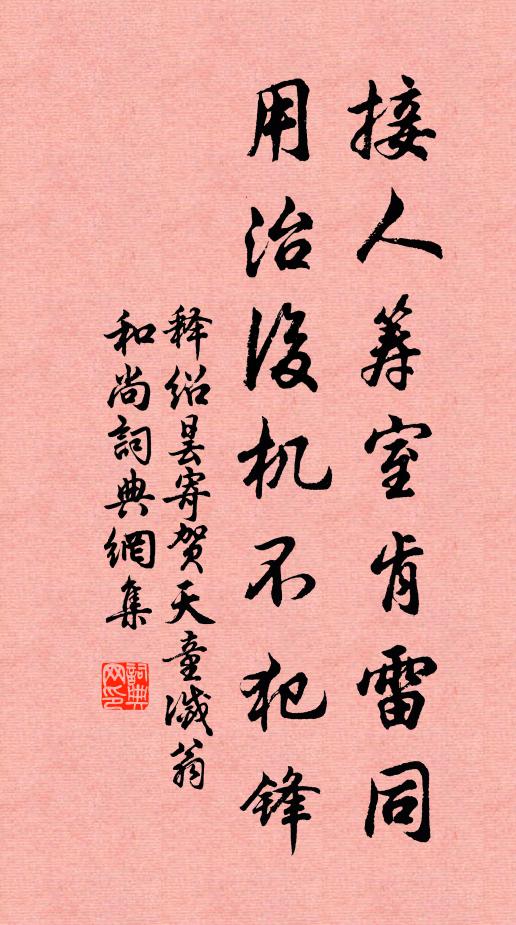 接人筹室肯雷同
用治後机不犯锋
释绍昙寄贺天童灭翁
和尚詞典網集
詞典网印